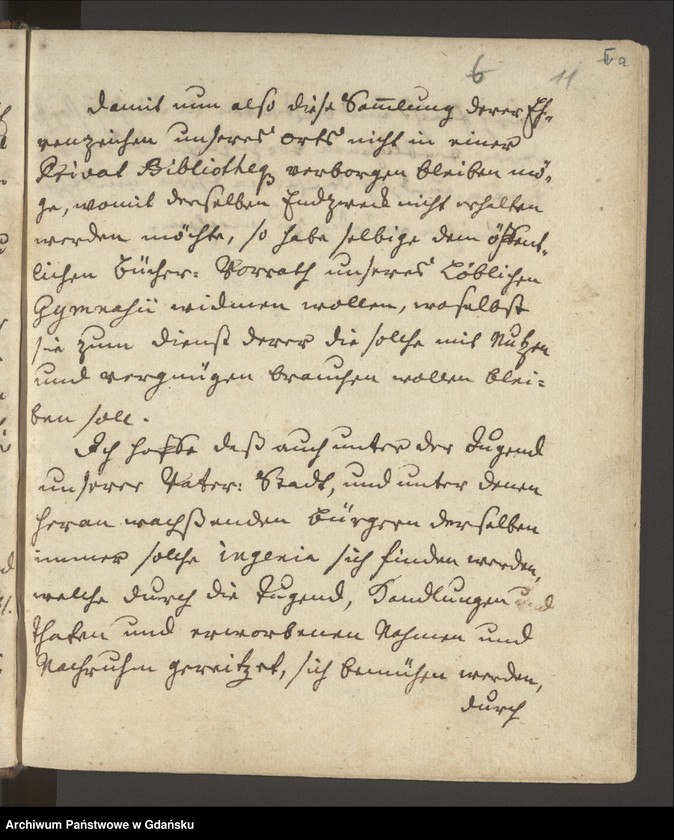 6
11
IIa
Damit nun also diese Sam̅lung derer Eh-
renzeichen unseres orts nicht in einer
Privat Bibliotheq verborgen bleiben mö-
ge, womit derselben Endzweck nicht erhalten
werden möchte, so habe selbige dem öffent-
lichen Bücher: Vorrath unseres Löblichen
Gymnasii widmen wollen, woselbst
sie zum dienst derer die solche mit Nutzen
und vergnügen brauchen wollen blei=
ben soll.
Ich hoffe daß auch unter der Jugend
unserer Vater: Stadt, und unter denen
heran wachßenden Bürgern derselben
immer solche ingenia sich finden werden,
welche durch die Tugend, Handlungen und
thaten und erworbenen Nahmen und
Nachruhm gereitzet, sich bemühen werden,
durch
Archiwum Państwowe w Gdańsku